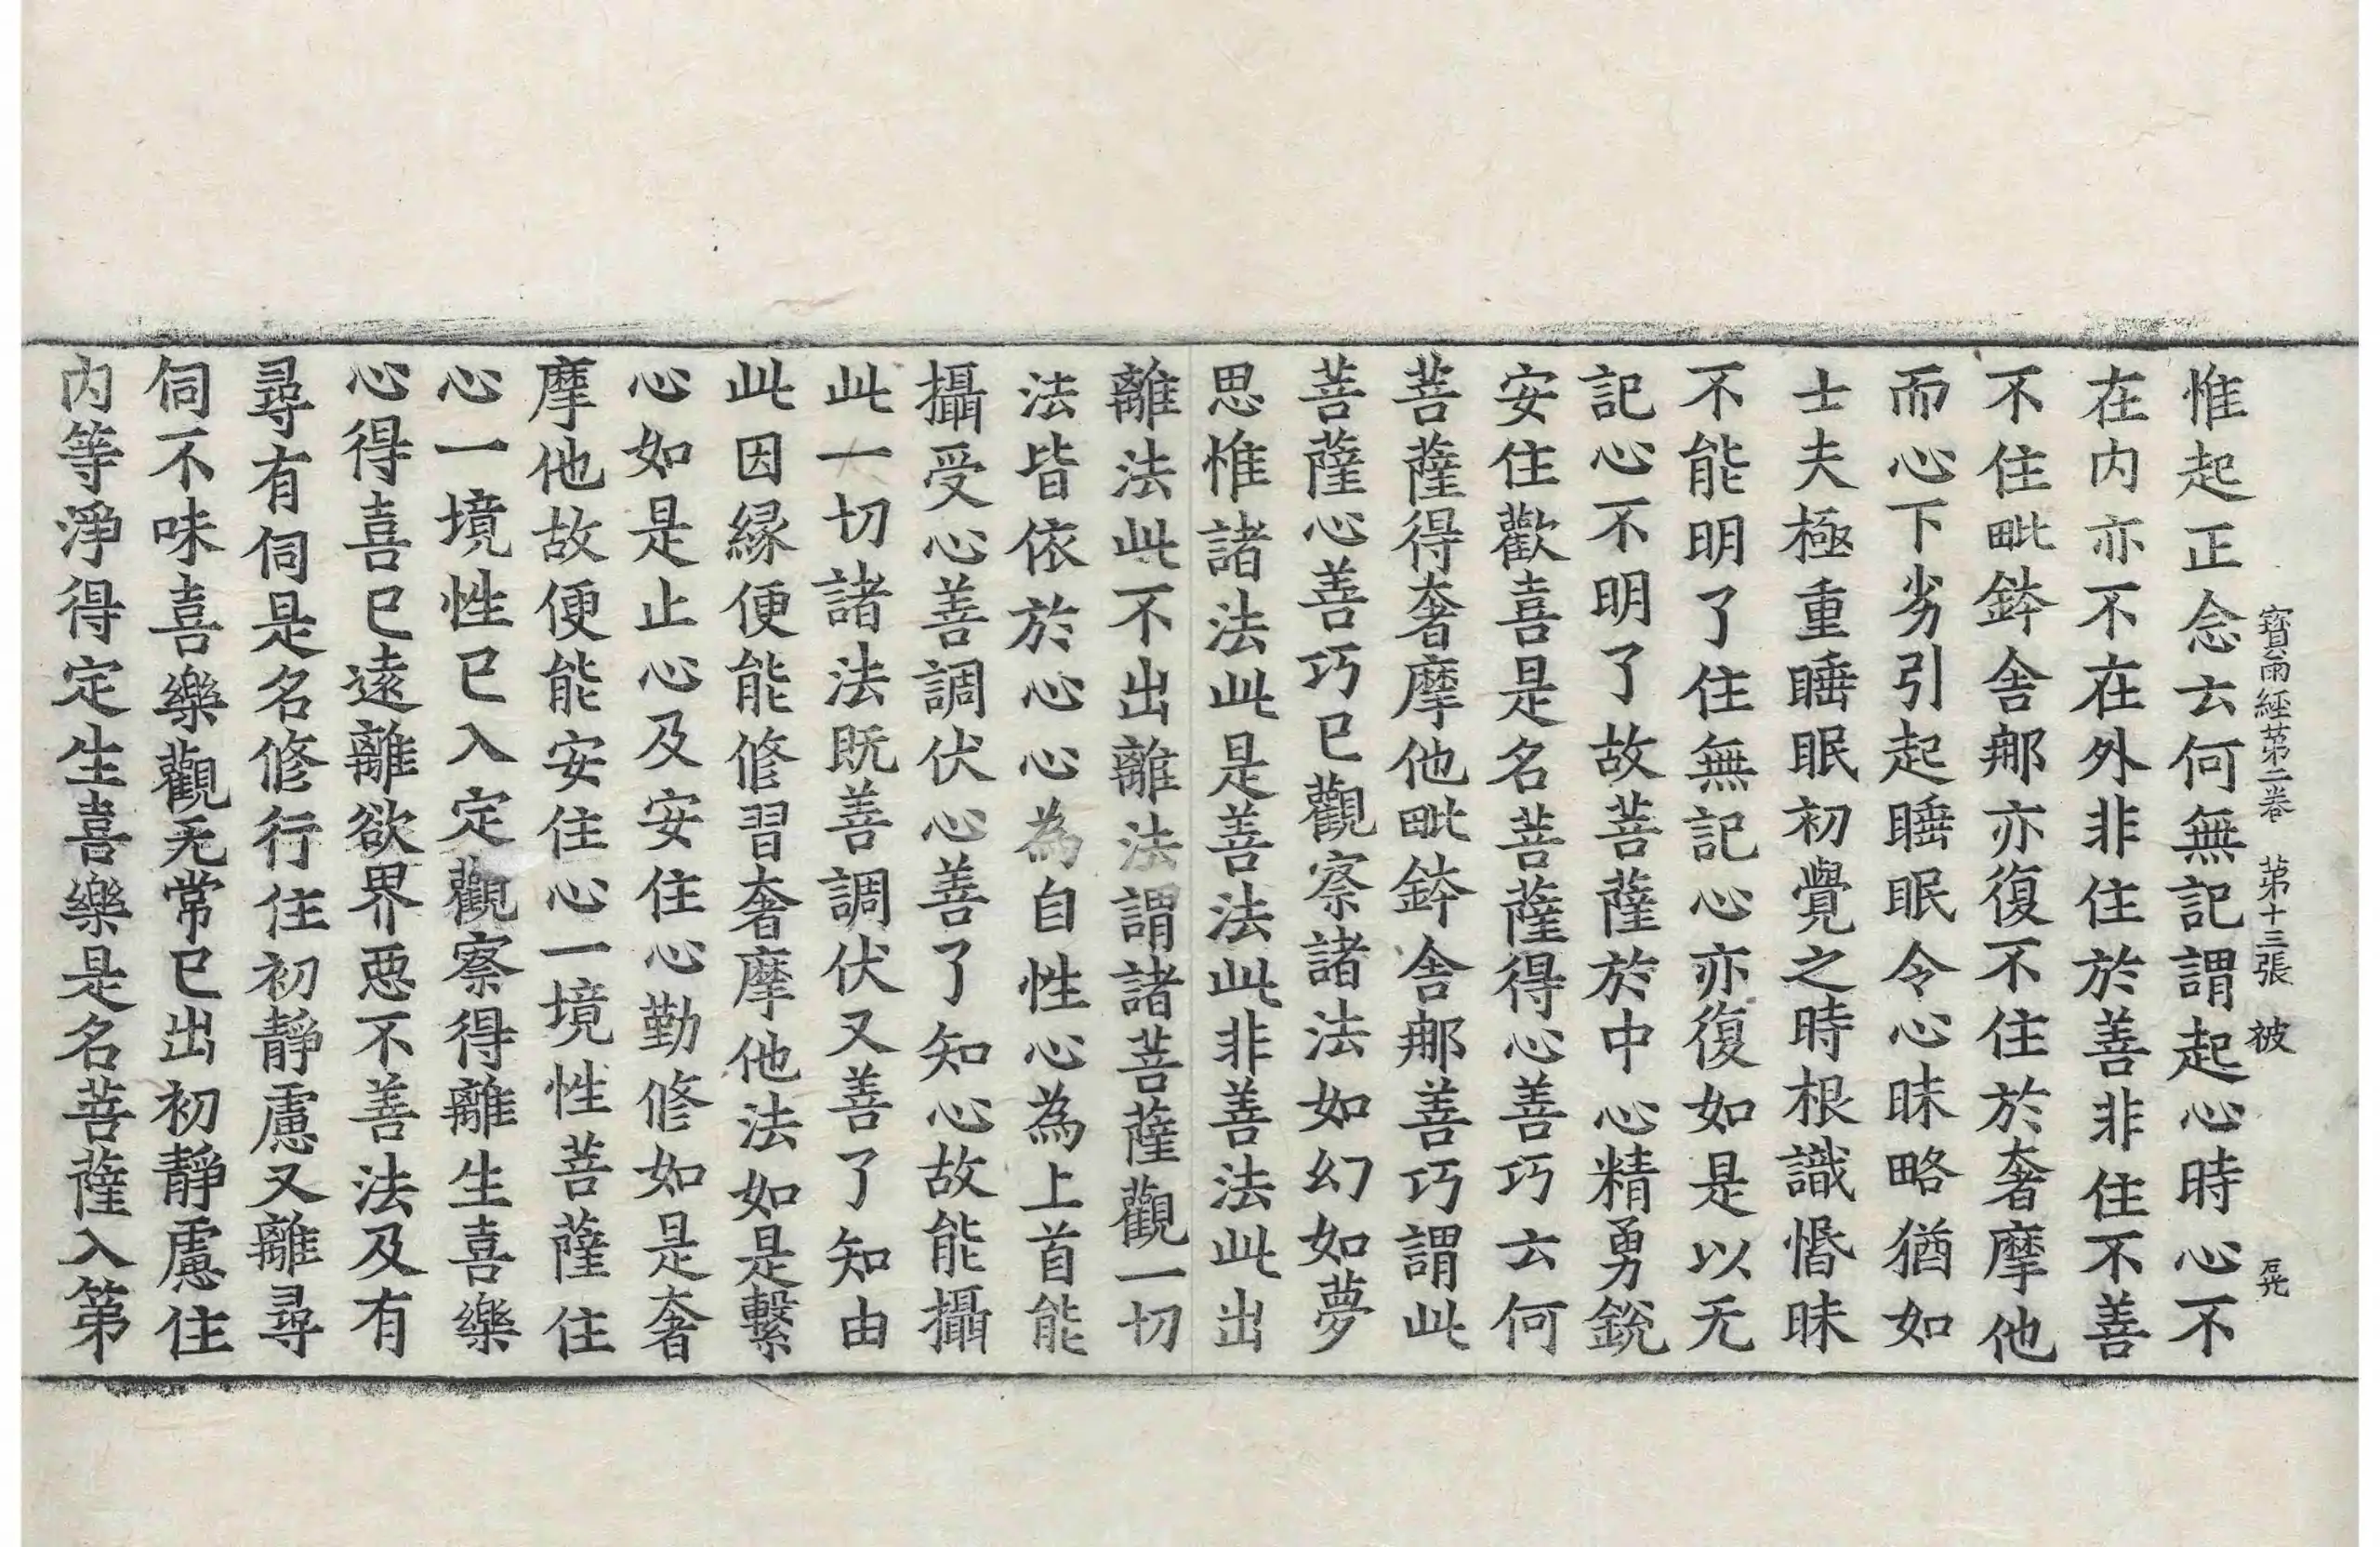 寶雨經第二卷 第十三張 被
惟起正念云何無記謂起心時心不
在内亦不在外非住於善非住不善
不住毗鉢舍那亦復不住於奢摩他
而心下劣引起睡眠令心昧略猶如
士夫極重睡眠初覺之時根識惛昧
不能明了住無記心亦復如是以无
記心不明了故菩薩於中心精勇銳
安住歡喜是名菩薩得心善巧云何
菩薩得奢摩他毗鉢舍那善巧謂此
菩薩心善巧已觀察諸法如幻如夢
思惟諸法此是善法此非善法此出
離法此不出離法謂諸菩薩觀一切
法皆依於心心為自性心為上首能
攝受心善調伏心善了知心故能攝
此一切諸法既善調伏又善了知由
此因緣便能修習奢摩他法如是繫
心如是止心及安住心勤修如是奢
摩他故便能安住心一境性菩薩住
心一境性已入定觀察得離生喜樂
心得喜已遠離欲界惡不善法及有
尋有伺是名修行住初靜慮又離尋
伺不味喜樂觀无常已出初靜慮住
内等淨得定生喜樂是名菩薩入第